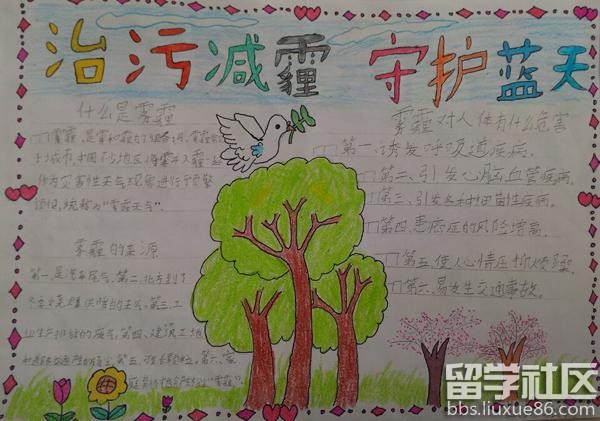 治污减霾 守护蓝天
什么是雾霾
雾霾,是雾和霾的组合词。雾霾常见
于城市,中国不少地区将雾并入霾一起
作为灾害性天气现象进行预警
预报,统称为“雾霾天气”。
雾霾的来源
第一是汽车尾气。第二、北方到了
冬季烧煤供暖的废气。第三、工
业生产排放的废气。第四、建筑工地
雾霾对人体有什么危害
第一、诱发呼吸道疾病。
第二、引发心脑血管疾病。
第三、引发各种细菌性疾病。
第四、患癌症的风险增高。
第五、使人心情压抑烦躁。
第六、易发生交通事故。
留学社区
bbs.liuxue86.com